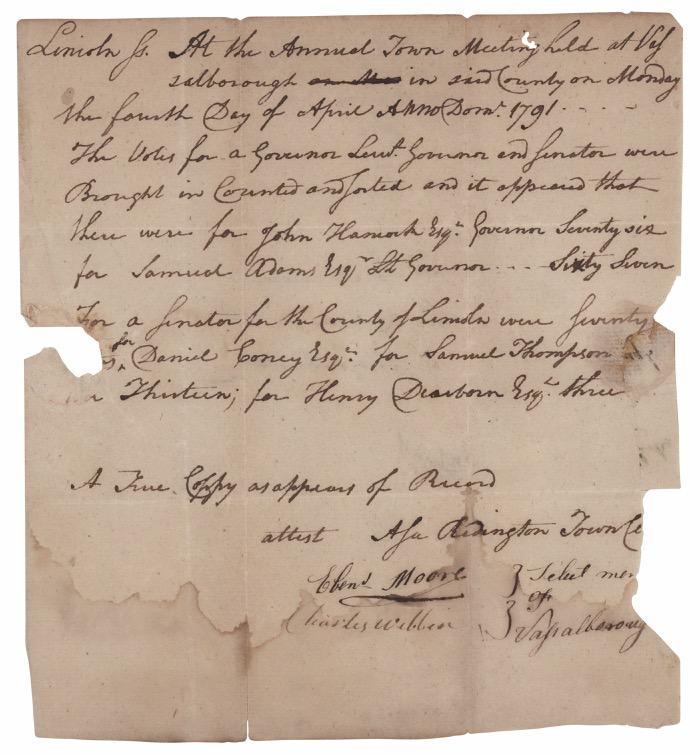 Lincoln ss. At the Annual Town Meeting held at Vas
salborough in said County on Monday
the fourth Day of April Anno Dom. 1791 - - - -
The Votes for a Governor Lieut. Governor and Senator were
Brought in Counted and sorted and it appeared that
there were for John Hancock Esqr. Governor Seventy six
for Samuel Adams Esqr Lt Governor - - - Sixty Seven
For a Senator for the County of Lincoln were Seventy
for Daniel Coney Esqr. for Samuel Thompson
Thirteen; for Henry Dearborn Esqr. three
A True Coppy as appears of Record
attest Asa Redington Town Cle
Ebenr. Moore } Select men
of
Charles Webber } Vassalboroug